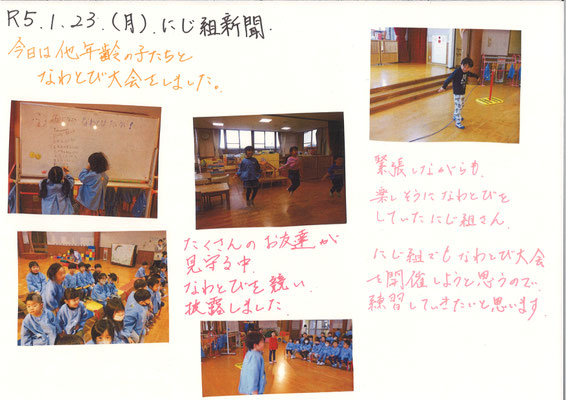 R5.1.23.(月).にじ組新聞.
今日は他年齢の子たちと
なわとび大会をしました。
たくさんのお友達が
見守る中、
なわとびを競い、
披露しました.
緊張しながらも、
楽しそうになわとびを
していたにじ組さん.
にじ組でもなわとび大会
を開催しようと思うので、
練習していきたいと思います.